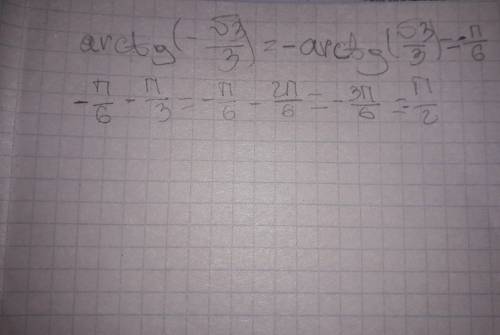 arctg(-√3/3) = -arctg(√3/3) = -π/6
-π/6 - π/3 = -π/6 - 2π/6 = -3π/6 = -π/2